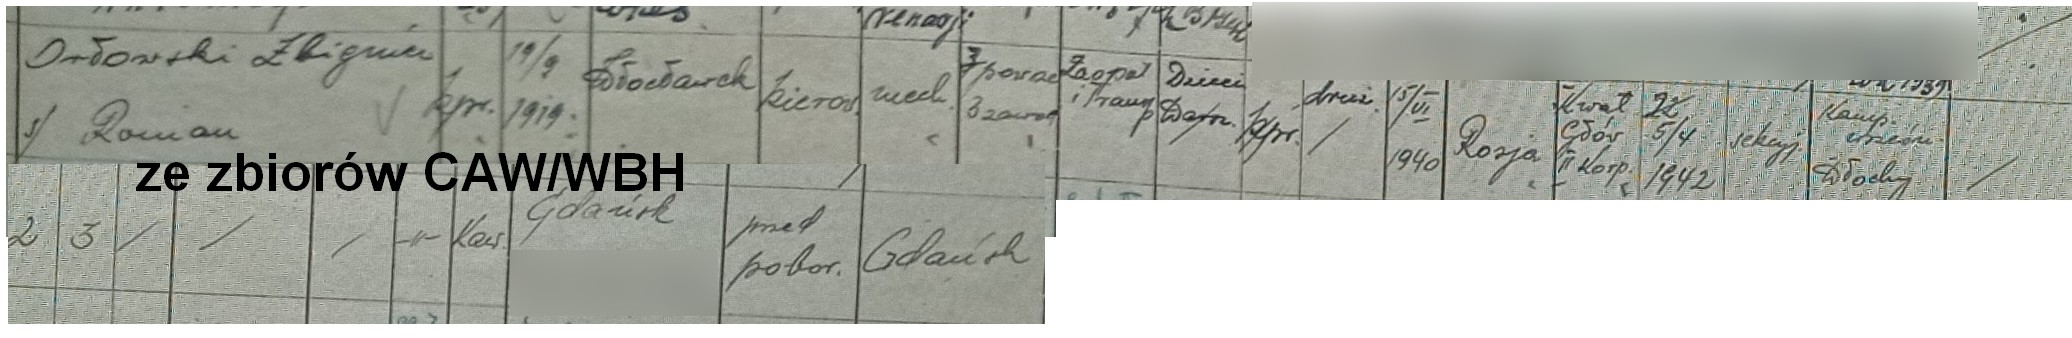 Orłowski Zbigniew
s/ Roman
kpr.
19/9
1919.
Włocławek
kierow.
mech.
7 powsz
3 zawod
Zaopat
i Transp
Dzieci
Warsz.
kpr.
druż.
/
15/VI
1940
Rosja
Kwat
Głów
II Korp.
22
5/4
1942
sekcyj.
Kamp.
wrześn.
Włochy
/
ze zbiorów CAW/WBH
2
3
/
/
/
-"-
Kaw.
Gdańsk
przed
pobor.
Gdańsk